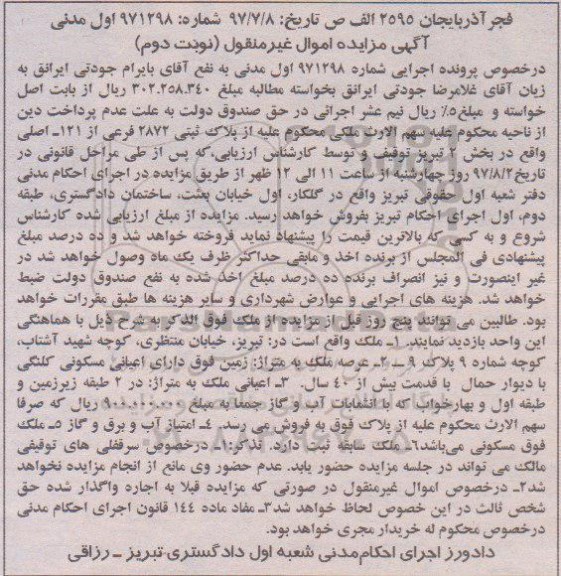 فجر آذربایجان ۲۵۹۵ الف ص تاریخ: ۹۷/۷/۸ شماره: ۹۷۱۲۹۸ اول مدنی
آگهی مزایده اموال غیرمنقول (نوبت دوم)
درخصوص پرونده اجرایی شماره ۹۷۱۲۹۸ اول مدنی به نفع آقای بایرام جودتی ایرانق به
زیان آقای غلامرضا جودتی ایرانق بخواسته مطالبه مبلغ ۳۰۲.۲۵۸.۳۴۰ ریال از بابت اصل
خواسته و مبلغ۵٪ ریال نیم عشر اجرائی در حق صندوق دولت به علت عدم پرداخت دین
از ناحیه محکوم علیه سهم الارث ملکی محکوم علیه از پلاک ثبتی ۲۸۷۲ فرعی از ۱۲۱ـ اصلی
واقع در بخش ۷ تبریز توقیف و توسط کارشناس ارزیابی،که پس از طی مراحل قانونی در
تاریخ۹۷/۸/۲ روز چهارشنبه از ساعت ۱۱ الی ۱۲ ظهر از طریق مزایده در اجرای احکام مدنی
دفتر شعبه اول حقوقی تبریز واقع در گلکار، اول خیابان بعثت، ساختمان دادگستری، طبقه
دوم، اول اجرای احکام تبریز بفروش خواهد رسید. مزایده از مبلغ ارزیابی شده کارشناس
شروع و به کسی که بالاترین قیمت را پیشنهاد نماید فروخته خواهد شد و ده درصد مبلغ
پیشنهادی فی المجلس از برنده اخذ و مابقی حداکثر ظرف یک ماه وصول خواهد شد در
غیر اینصورت و نیز انصراف برنده ده درصد مبلغ اخذ شده به نفع صندوق دولت ضبط
خواهد شد. هزینه های اجرایی و عوارض شهرداری و سایر هزینه ها طبق مقررات خواهد
بود. طالبین می توانند پنج روز قبل از مزایده از ملک فوق الذکر به شرح ذیل با هماهنگی
این واحد بازدید نمایند. ۱ـ ملک واقع است در: تبریز، خیابان منتظری، کوچه شهید آشتاب،
کوچه شماره ۹ پلاک ۹ ـ ۲ـ عرصه ملک به متراژ: زمین فوق دارای اعیانی مسکونی کلنگی
با دیوار حمال با قدمت بیش از ۴۰ سال. ۳ـ اعیانی ملک به متراژ: در ۲ طبقه زیرزمین و
طبقه اول و بهارخواب که با انشعابات آب و گاز جمعا به مبلغ ریال که صرفا
سهم الارث محکوم علیه از پلاک فوق به فروش می رسد. ۴ـ امتیاز آب و برق و گاز ۵ـ ملک
فوق مسکونی می‌باشد.۶ـ ملک سابقه ثبت دارد. تذکر:۱ـ درخصوص سرقفلی های توقیفی
مالک می تواند در جلسه مزایده حضور یابد. عدم حضور وی مانع از انجام مزایده نخواهد
شد۲ـ درخصوص اموال غیرمنقول در صورتی که مزایده قبلا به اجاره واگذار شده حق
شخص ثالث در این خصوص لحاظ خواهد شد۳ـ مفاد ماده ۱۴۴ قانون اجرای احکام مدنی
درخصوص محکوم له خریدار مجری خواهد بود.
دادورز اجرای احکام‌مدنی شعبه اول دادگستری‌تبریز ـ رزاقی